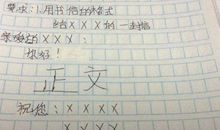 要求:1.用书信的格式
给XXX的一封信
亲爱的XXX:
你好!
正文
祝您:XXXX
XXXX